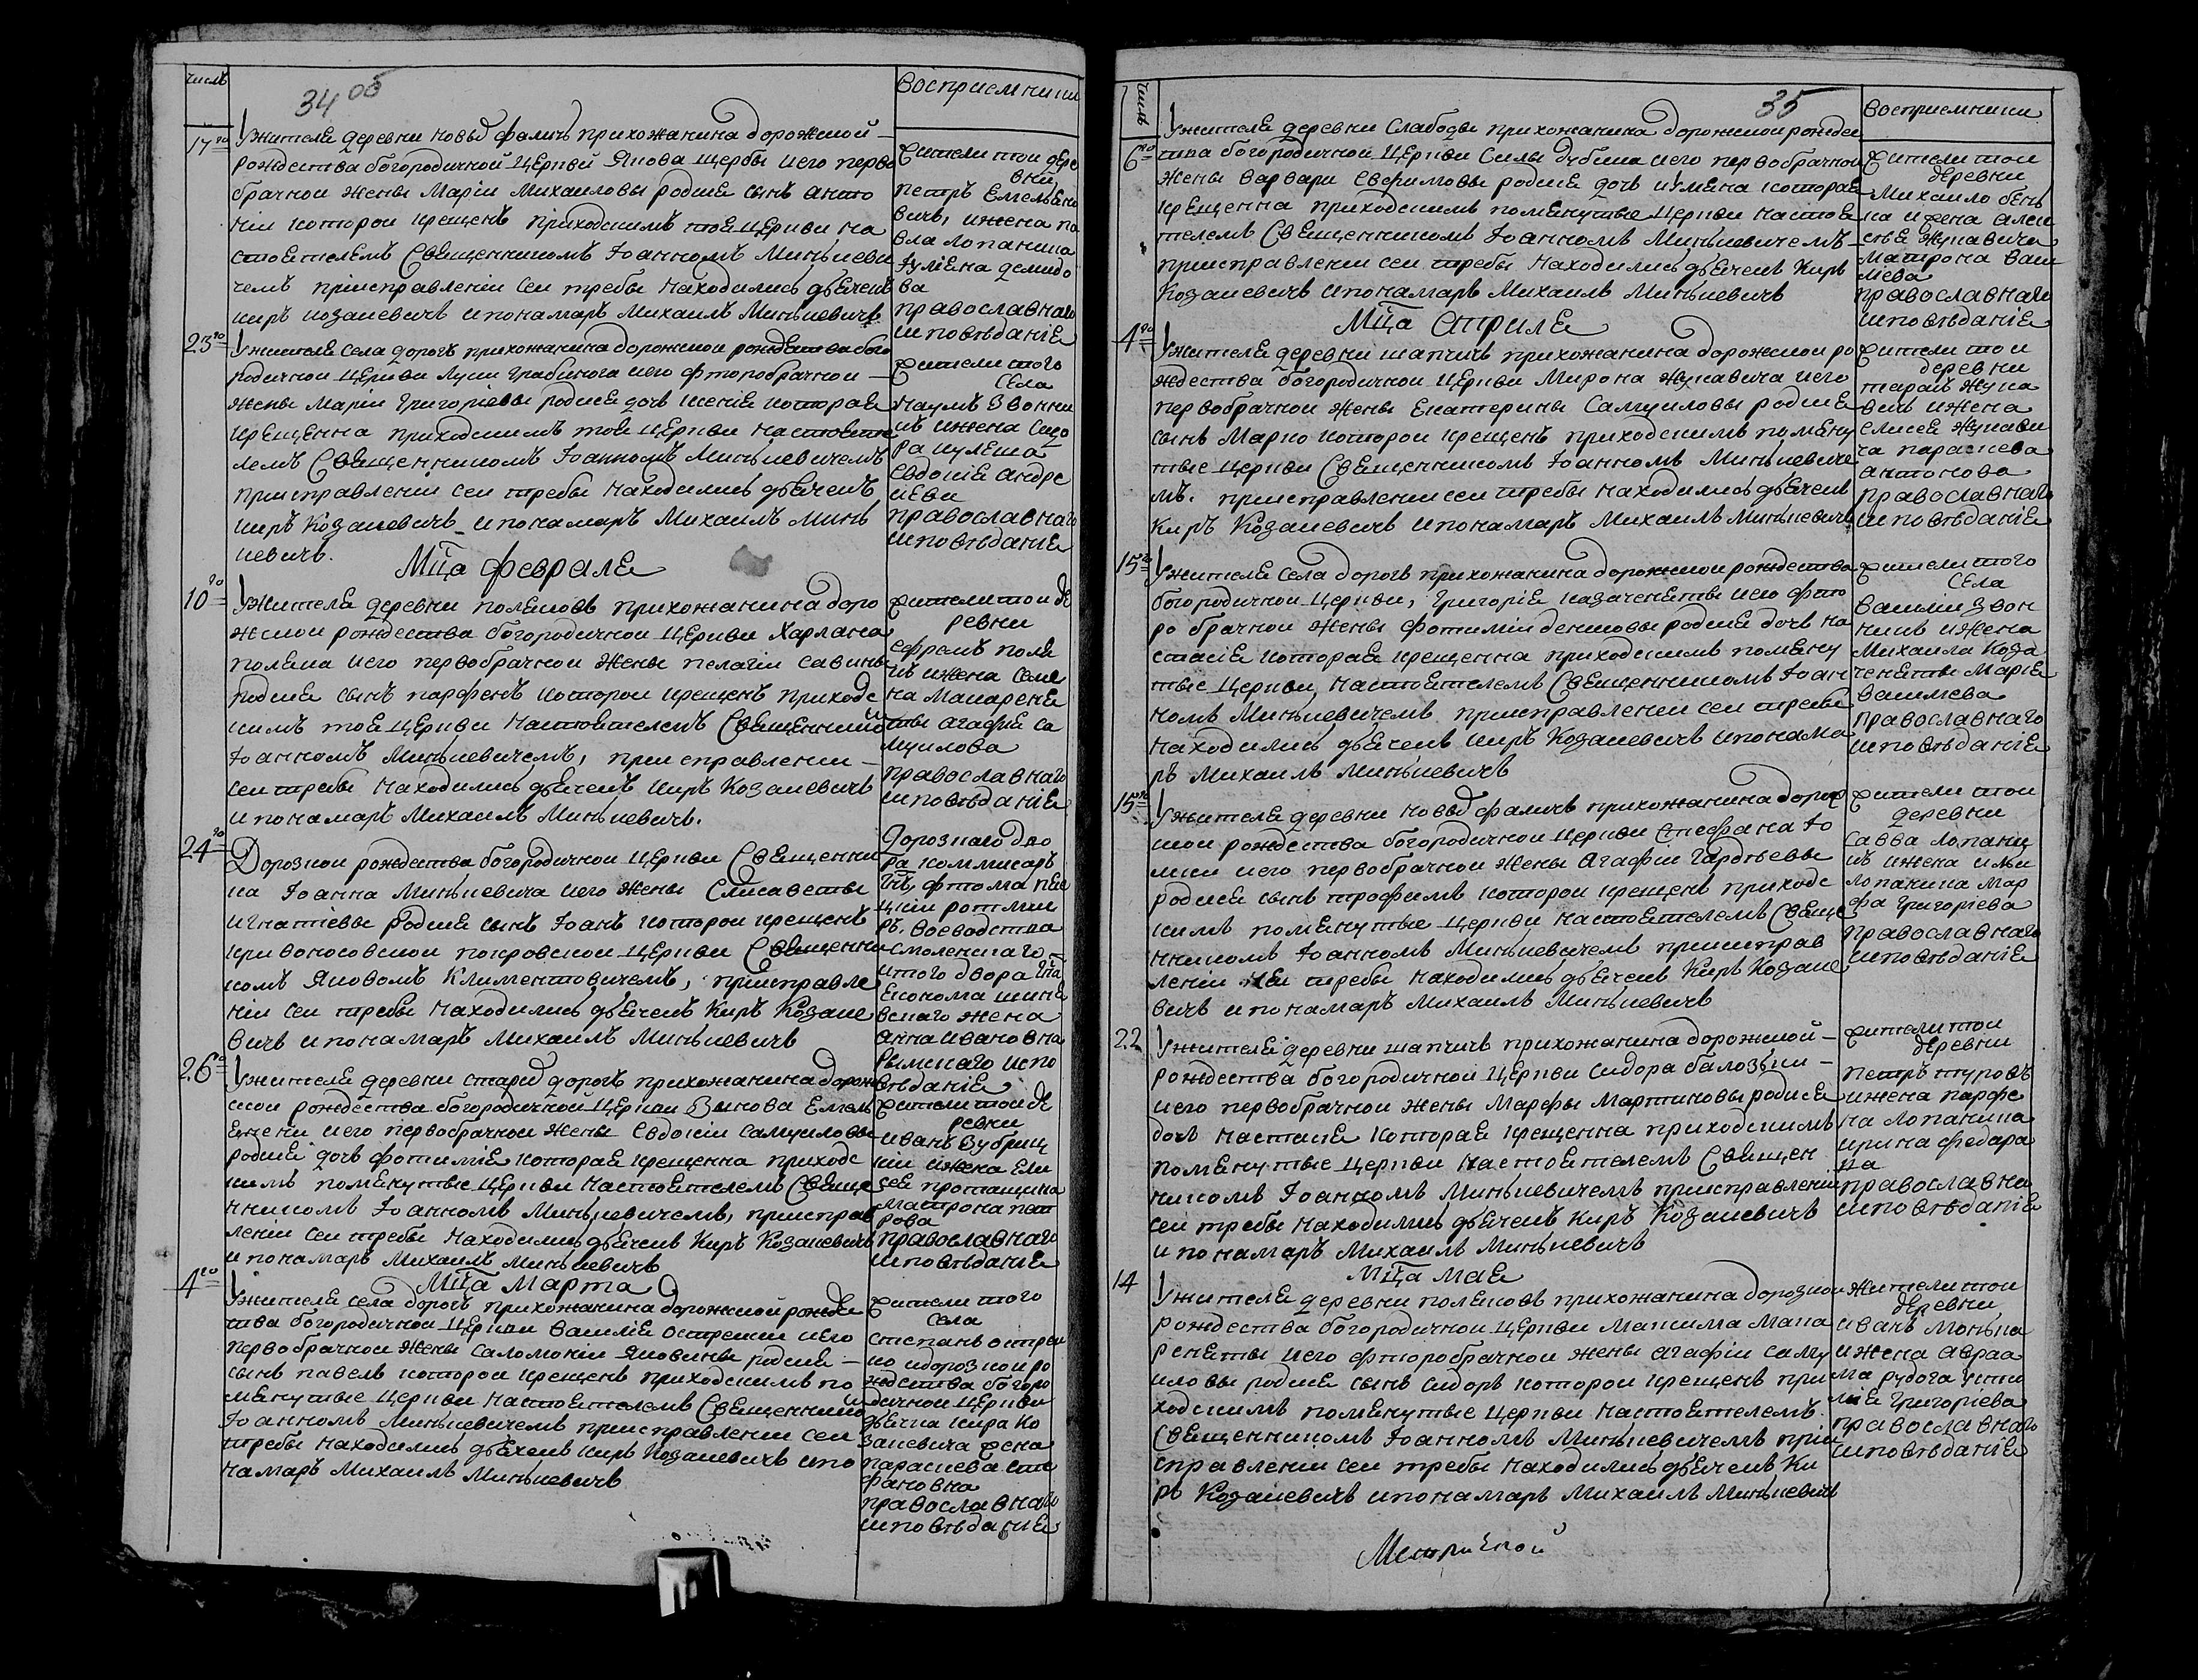 числъ
34 об
восприемники
17го
У жителя деревни новых фаличь прихожанина дорожской
рождества богородичной церкви Якова щербы и его перво
брачной жены Марiи Михаиловы родися сынъ анто
нiи которои крещенъ приходскимъ тоя церкви на
стоятелемъ Священникомъ Iоанномъ Минькеви
чемъ приисправленiи сеи требы находились дьячекъ
киръ козакевичъ и понамаръ Михаилъ Минькевичъ
жители тои дере
вни
петръ Емельяно
вичъ, и жена па
вла лопаника
Iулiяна демидо
ва
православнаго
исповѣданiя
23го
У жителя села дорогъ прихожанина дорожскои рождества бого
родичнои церкви луки грабикога и его фторобрачнои
жены Марiи григорiевы родися дочь ксенiя которая
крещенна приходскимъ тоя церкви настояте
лемъ Священникомъ Iоанномъ Минькевичемъ
приисправленiи сеи требы находились дьячекъ
киръ Козакевичъ и понамаръ Михаилъ Минь
кевичъ.
жители того
села
Наумъ Звонни
къ и жена сидо
ра кулеша
Евдокiя андре
иева
православнаго
исповѣданiя
Мца февраля
10го
У жителя деревни поляковъ прихожанина доро
жскои рождества богородичнои церкви Харлана
поляка и его первобрачнои жены пелагiи савины
родися сынъ парфенъ которои крещенъ приходс
кимъ тоя церкви настоятелемъ Священникой
Iоанномъ Минькевичемъ, приисправленiи
сеи требы находились дьячекъ киръ Козакевичъ
и понамаръ Михаилъ Минькевичъ.
жители тои де
ревни
Ефремъ поля
къ и жена семе
на Макареня
ты агафiя са
муилова
православнаго
исповѣданiя
24го
Дорозкои рождества богородичнои церкви Священни
ка Iоанна Минькевича и его жены Елисаветы
игнатiевы родися сынъ Iоанъ которои крещенъ
кривоносовскои покровскои церкви Священни
комъ Яковомъ Климентовичемъ, приисправле
нiи сеи требы находились дьячекъ Киръ Козаке
вичъ и понамаръ Михаилъ Минькевичъ
Дорозкаго дво
ра коммисаръ
фтома
ротмис
ръ. воеводства
Смоленскаго
и того двора
Економа
вскаго жена
анна ивановна
Рымскаго испо
вѣданiя
26го
У жителя деревни старых дорогъ прихожанина дорож
скои рождества богородичнои церкви Якова Емель
янени и его первобрачнои жены Евдокiи самуиловы
родися дочь фотимiя которая крещенна приходс
кимъ помянутыя церкви настоятелемъ Свяще
нникомъ Iоанномъ Минькевичемъ, приисправ
ленiи сеи требы находились дьячекъ Киръ Козакевичъ
и понамаръ Михаилъ Минькевичъ
жители тои де
ревни
иванъ Зубриц
кiи и жена ели
сея протащика
Матрона пет
рова
православнаго
исповѣданiя
Мца Марта
4го
У жителя села дорогъ прихожанина дорожской рожде
тва богородичнои церкви василiя острейки и его
первобрачнои жены саломонiи яковины родися
сынъ павелъ которои крещенъ приходскимъ по
мянутые церкви настоятелемъ Священникой
Iоанномъ Минькевичемъ приисправленiи сеи
требы находились дьячекъ киръ Козакевичъ и по
намаръ Михаилъ Минькевичъ
жители того
села
степанъ остреи
ко и дорозкои ро
ждества богоро
дичнои церкви
дьячка кира Ко
закевича жена
параскева сте
фановна
православнаго
исповѣданiя
числъ
35
восприемники
6го
У жителя деревни Слабоды прихожанина дорожскои рождес
тва богородичнои церкви силы дубика и его первобрачнои
жены варвары Евфимовы родися дочь иулиана которая
крещенна приходскимъ помянутые церкви настоя
телемъ Священникомъ Iоанномъ Минькевичемъ
приисправленiи сеи требы находились дьячекъ Киръ
Козакевичъ и понамаръ Михаилъ Минькевичъ
жители тои
деревни
Михаило бень
ка и жена алек
сѣя жукавича
Матрона васи
лева
православнаго
исповѣданiя
Мца Априля
4го
У жителя деревни шапчичъ прихожанина дорожскои ро
ждества богородичнои церкви Мирона жукавича и его
первобрачнои жены Екатерины Самуиловы родися
сынъ Марко которои крещенъ приходскимъ помяну
тые церкви Священникомъ Iоанномъ Минькевиче
мъ. приисправленiи сеи требы находились дьячекъ
Киръ Козакевичъ и понамаръ Михаилъ Минькевичъ
жители тои
деревни
тарасъ жука
вичъ и жена
елисея жукави
ча параскева
антонова
православнаго
исповѣданiя
15го
У жителя села дорогъ прихожанина дорожскои рождества
богородичнои церкви, григорiя казаченяты и его фто
ро брачнои жены фотимiи денисовы родися дочь на
стасiя которая крещенна приходскимъ помяну
тые церкви настоятелемъ Священникомъ Iоан
номъ Минькевичемъ приисправленiи сеи требы
находились дьячекъ киръ Козакевичъ и понама
ръ Михаилъ Минькевичъ
жители того
села
Василiи звон
никъ и жена
Михаила Коза
ченяты Марiя
василева
православнаго
исповѣданiя
15го
У жителя деревни новых фаличъ прихожанина дорож
скои рождества богородичнои церкви стефана Iо
лкси и его первобрачнои жены агафiи гардеевы
родися сынъ трофимъ которои крещенъ приходс
кимъ помянутые церкви настоятелемъ Свяще
нникомъ Iоанномъ Минькевичемъ приисправ
ленiи сеи требы находились дьячекъ Киръ Козаке
вичъ и понамаръ Михаилъ Минькевичъ
жители тои
деревни
Савва лопани
къ и жена ильи
лопаника мар
фа григорiева
православнаго
исповѣданiя
22
У жителя деревни шапчичъ прихожанина дорожской
рождества богородичнои церкви сидора балозьки
и его первобрачнои жены Марфы Мартиновы родися
дочь настасiя которая крещенна приходскимъ
помянутые церкви настоятелемъ Священ
никомъ Iоанномъ Минькевичемъ приисправленiи
сеи требы находились дьячекъ Киръ Козакевичъ
и понамаръ Михаилъ Минькевичъ
жители тои
деревни
петръ туровъ
и жена парфе
на лопаника
ирина федара
ва
православна
исповѣданiя
Мца мая
14
У жителя деревни поляковъ прихожанина дорозкои
рождества богородичнои церкви Максима Мака
реняты и его фторобрачнои жены агафiи саму
иловы родися сынъ сидоръ которои крещенъ при
ходскимъ помянутые церкви настоятелемъ
Священникомъ Iоанномъ Минькевичемъ прии
справленiи сеи требы находились дьячекъ Ки
ръ Козакевичъ и понамаръ Михаилъ Минькевичъ
жители тои
деревни
иванъ Монька
и жена авраа
ма рудога усти
мiя григорiева
православнаго
исповѣданiя
Метричной